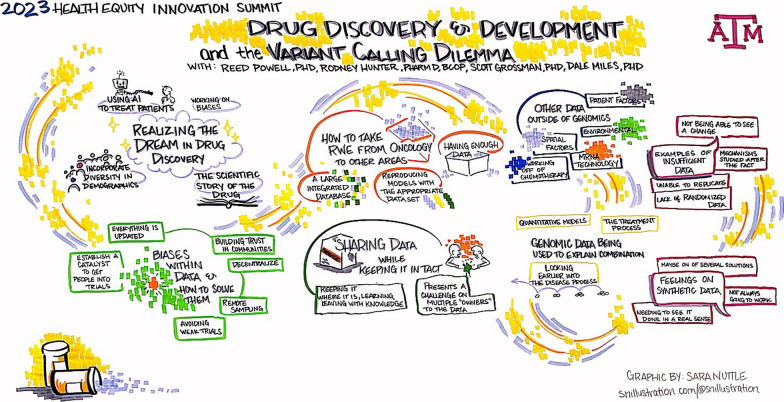 2023 HEALTH EQUITY INNOVATION SUMMIT
DRUG DISCOVERY & DEVELOPMENT
and the VARIANT CALLING DILEMMA
WITH: REED POWELL, PHD, RODNEY HUNTER, PHARMD, BCOP, SCOTT GROSSMAN, PHD, DALE MILES, PHD
ATM
USING AI
TO TREAT PATIENTS
WORKING ON
BIASES
REALIZING THE
DREAM IN DRUG
DISCOVERY
INCORPORATE
DIVERSITY IN
DEMOGRAPHICS
THE SCIENTIFIC
STORY OF THE
DRUG
HOW TO TAKE
RWE FROM ONCOLOGY
TO OTHER AREAS
HAVING ENOUGH
DATA
A LARGE
INTEGRATED
DATABASE
REPRODUCING
MODELS WITH THE
APPROPRIATE
DATA SET
OTHER DATA
OUTSIDE OF GENOMICS
PATIENT FACTORS
ENVIRONMENTAL
SPATIAL
FACTORS
MRNA
TECHNOLOGY
WORKING
OFF OF
CHEMOTHERAPY
NOT BEING ABLE TO SEE
A CHANGE
EXAMPLES OF
INSUFFICIENT
DATA
MECHANISMS
STUDIED AFTER
THE FACT
UNABLE TO REPLICATE
LACK OF RANDOMIZED
DATA
EVERYTHING IS
UPDATED
BUILDING TRUST
IN COMMUNITIES
ESTABLISH A
CATALYST TO
GET
PEOPLE INTO
TRIALS
BIASES
WITHIN
DATA &
HOW TO SOLVE
THEM
DECENTRALIZE
REMOTE
SAMPLING
AVOIDING
WEAK TRIALS
SHARING DATA
WHILE
KEEPING IT IN TACT
KEEPING IT
WHERE IT IS, LEARNING,
LEAVING WITH KNOWLEDGE
PRESENTS A
CHALLENGE ON
"MULTIPLE OWNERS"
TO THE DATA
QUANTITATIVE MODELS
THE TREATMENT
PROCESS
GENOMIC DATA BEING
USED TO EXPLAIN COMBINATION
LOOKING
EARLIER INTO
THE DISEASE PROCESS
MAYBE ON OF SEVERAL SOLUTIONS
FEELINGS ON
SYNTHETIC DATA
NOT ALWAYS
GOING TO WORK
NEEDING TO SEE IT
DONE IN A REAL SENSE
GRAPHIC BY: SARA NUTTLE
snillustration.com/@snillustration